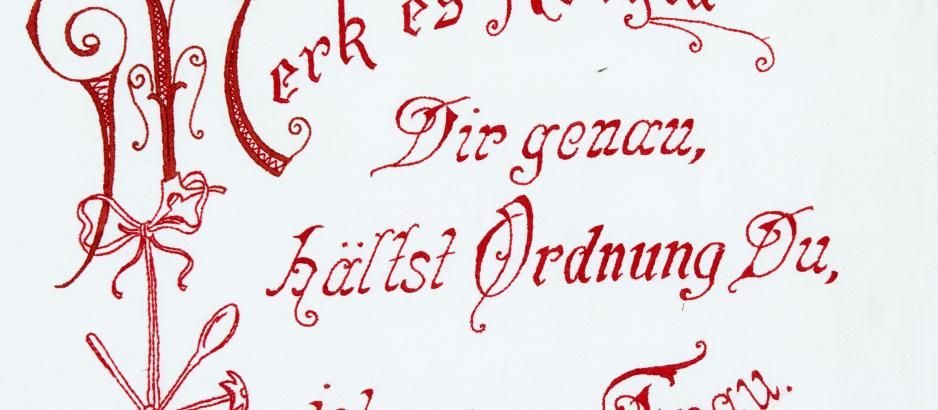 Merk es
Dir genau,
hältst Ordnung Du,
Frau.